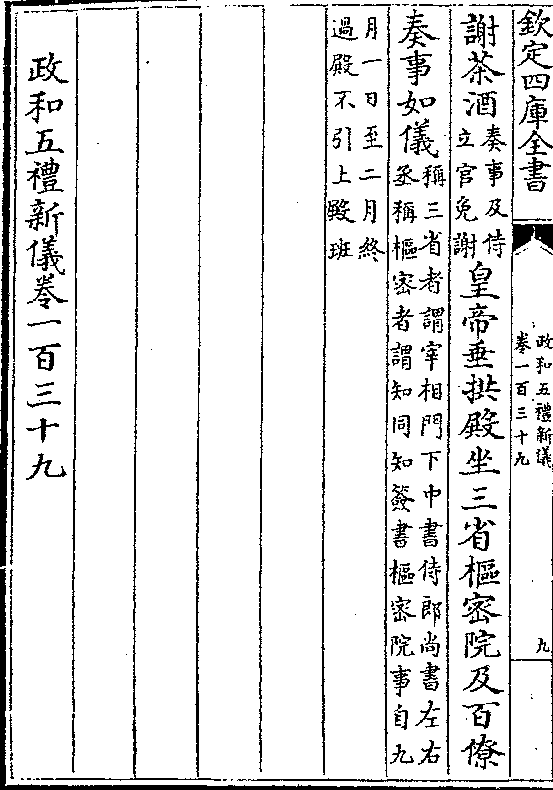 欽定四庫全書
政和五禮新儀
卷一百三十九
九
謝茶酒
奏事及侍
立官免謝
皇帝垂拱殿坐三省樞密院及百僚
奏事如儀
稱三省者謂宰相門下中書侍郎尚書左右
丞稱樞密者謂知同知簽書樞密院事自九
月一日至二月終
過殿不引上殿班
政和五禮新儀卷一百三十九